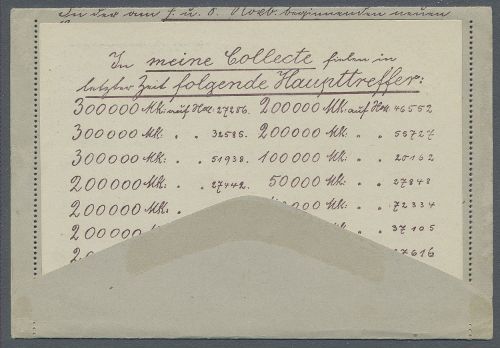 In der am 7. u. 8. Novb. beginnenden neuen
In meine Collecte fielen in
letzter Zeit folgende Haupttreffer:
300000 Mk: auf No. 27256. 200000 Mk: auf No. 46552
300000 Mk: " " 32585. 200000 Mk: " " 55727
300000 Mk: " " 51938. 100000 Mk: " " 20162
200000 Mk: " " 27442. 50000 Mk: " " 27848
200000 Mk: " 72334
200000 Mk: " 37105
200000 27616